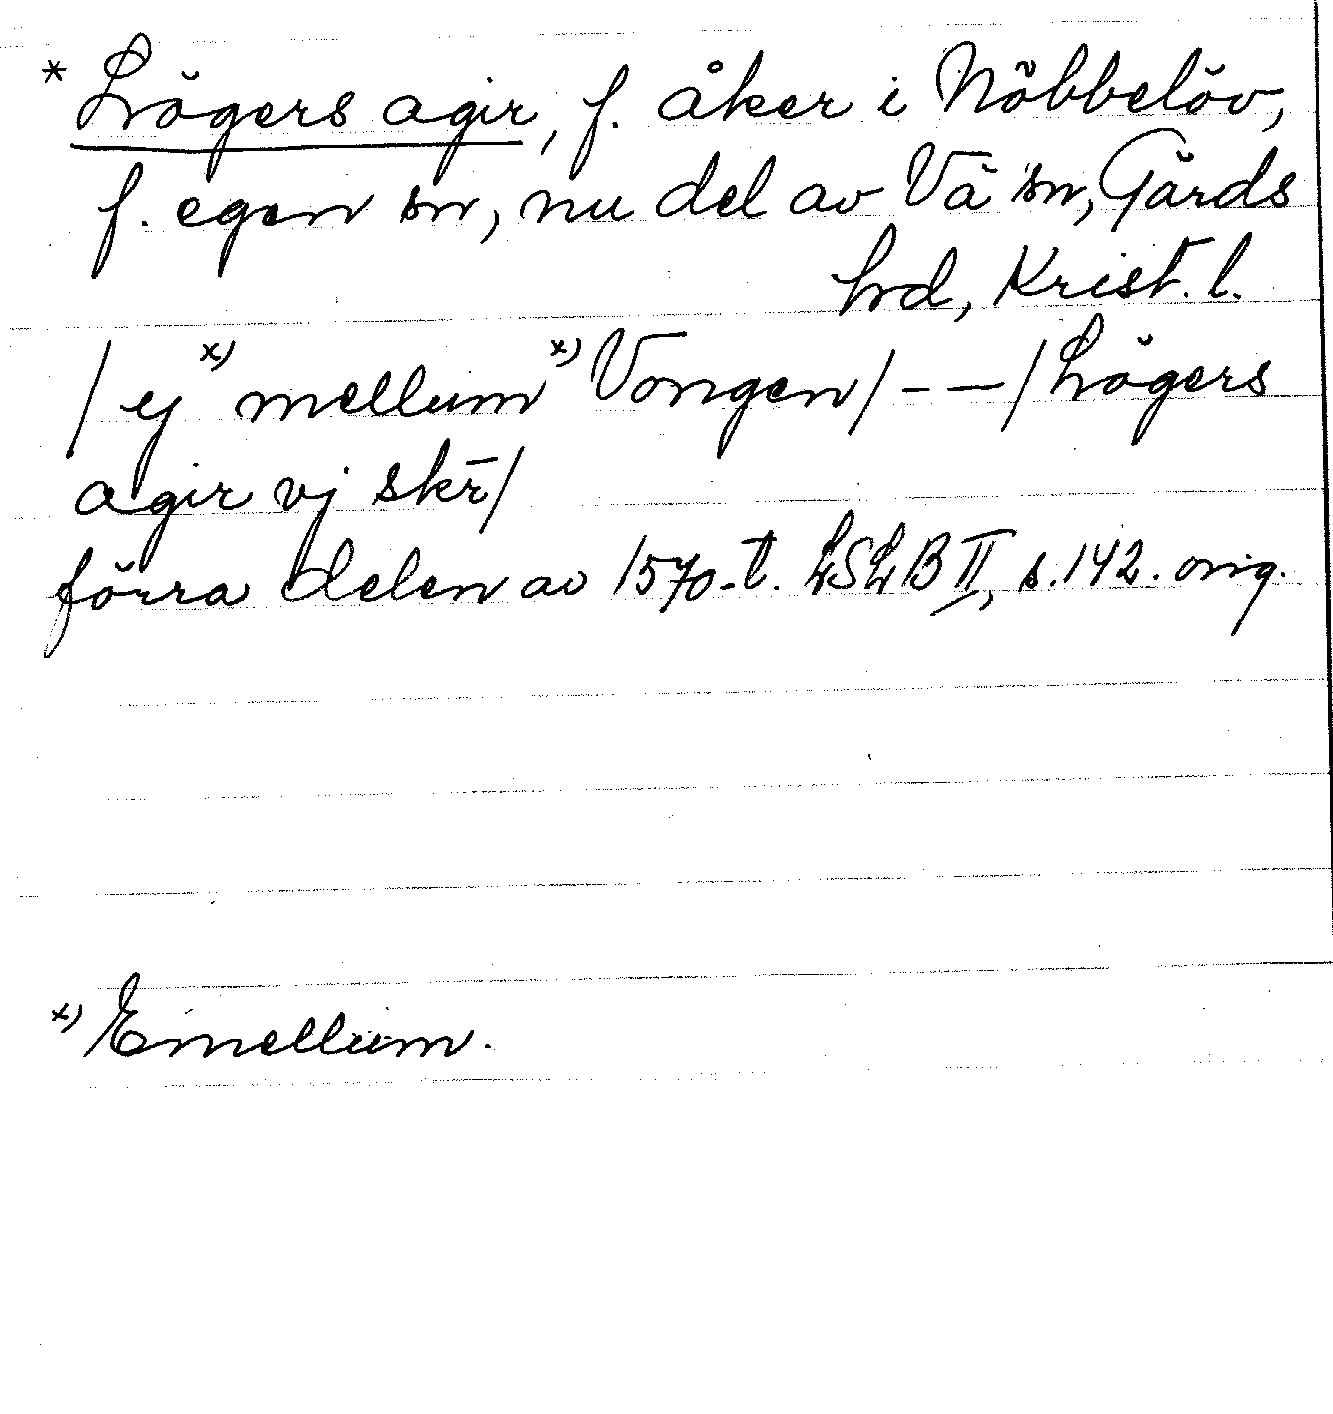 * Lögers agir, f. åker i Nöbbelöv,
f. egen sn, nu del av Vä sn, Gärds
hd, Krist. l.
/ ej x) mellum x) Vongen / - — / Lögers
agir vj skr̄ /
förra delen av 1570-t. LSLB II, s. 142. orig.
x) Emellum.